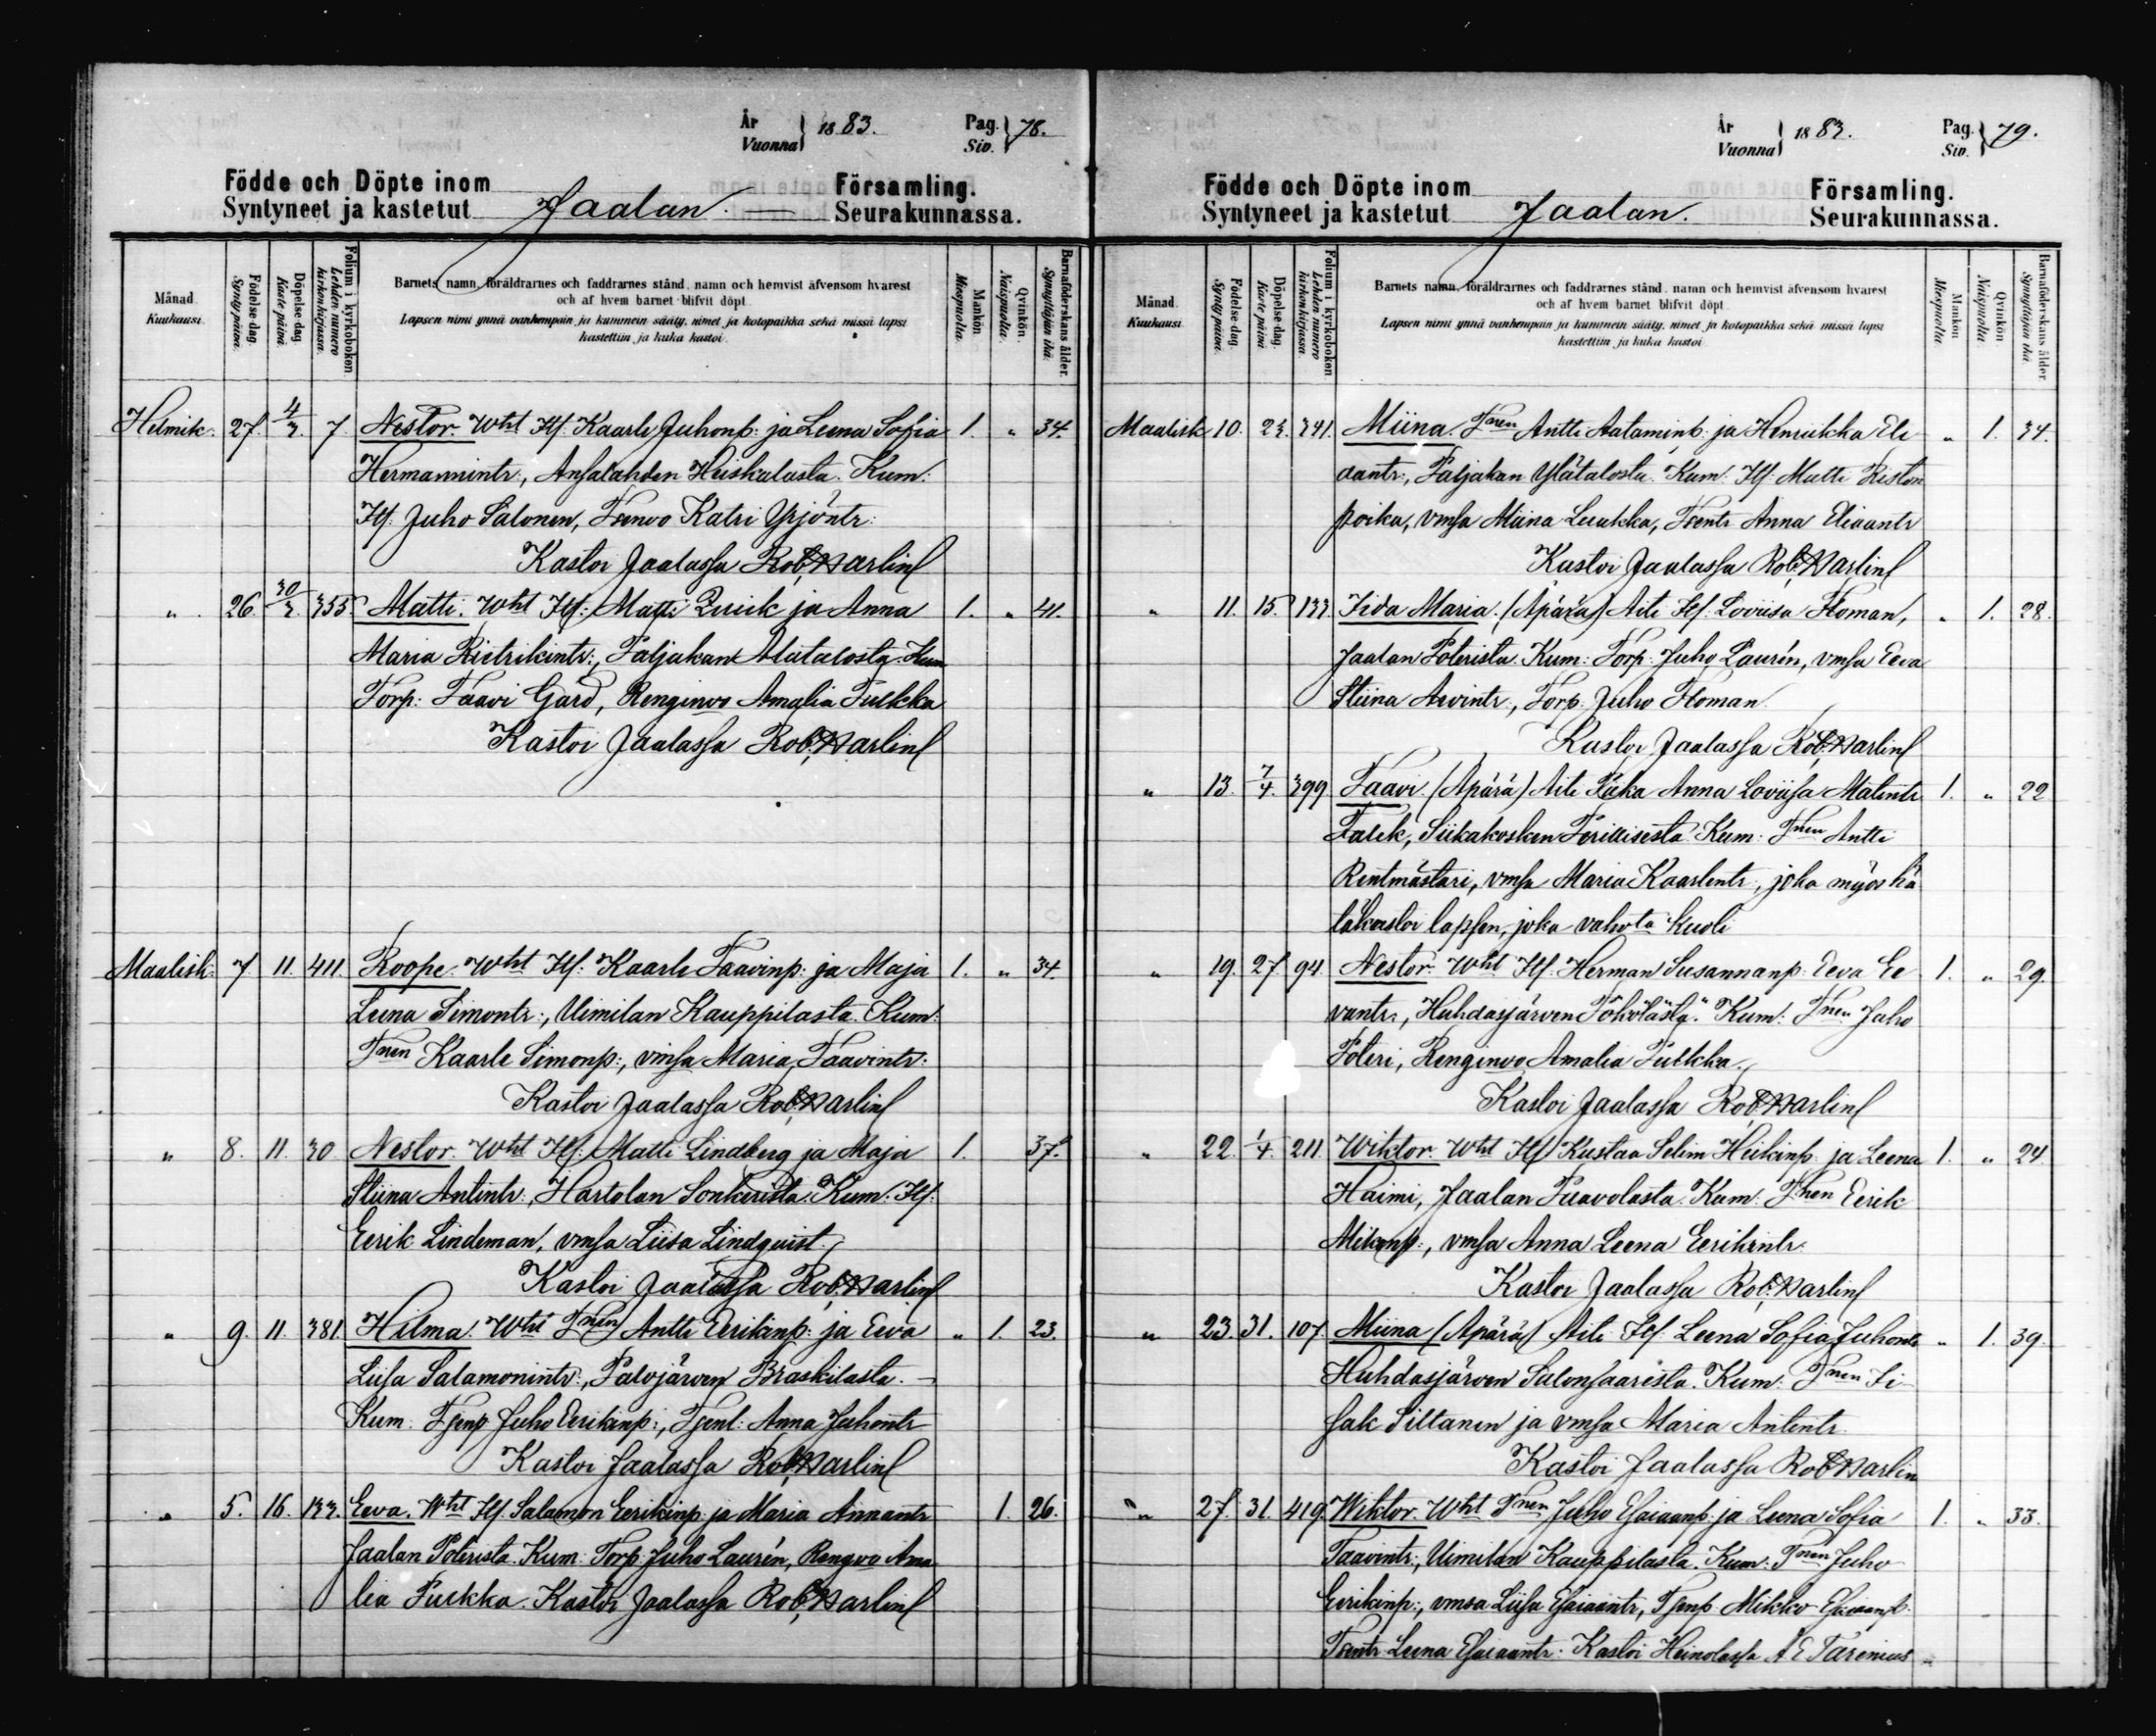 År
Vuonna } 1883. Pag. Siv. } 78.
Födde och Döpte inom Församling.
Syntyneet ja kastetut Jaalan. Seurakunnassa.
Månad. Kuukausi. Födelse-dag. Synty päivä. Döpelse-dag. Kaste päivä. Folium i kyrkoboken. Lehden numero kirkonkirjassa. Barnets namn, föräldrarnes och faddrarnes stånd, namn och hemvist äfvensom hvarest
och af hvem barnet blifvit döpt.
Lapsen nimi ynnä vanhempain ja kummein sääty, nimet ja kotopaikka sekä missä lapsi
kastettiin ja kuka kastoi.
Mankön. Miespuolta. Qvinkön. Naispuolta. Barnaföderskans ålder. Synnyttäjän ikä.
Helmik. 27. 4/3. 7. Nestor. Wht Itt: Kaarle Juhonp: ja Leena Sofia 1. " 34.
Hermannintr:, Ansalahden Heiskalasta. Kum:
Itt: Juho Salonen, Tsenvo Katri Yrjöntr:
Kastoi Jaalassa Rob. Warlin
" 26. 30/3. 355. Matti. Wht Itt: Matti Quick ja Anna 1. " 41.
Maria Rietrikintr:, Paljakan Alatalosta. Kum
Torp: Taavi Gard, Renginvo Amalia Pulkka
Kastoi Jaalassa Rob. Warlin
Maalisk. 7 11. 411. Roope. Wht Itt: Kaarle Taavinp: ja Maja 1. " 34.
Leena Simontr:, Uimilan Kauppilasta. Kum:
Tnen Kaarle Simonp:, vmsa Maria Taavintr:
Kastoi Jaalassa Rob. Warlin
" 8. 11. 30 Nestor. Wht Itt: Matti Lindberg ja Maja 1. 37.
Stiina Antintr:, Hartolan Sonkerista. Kum: Itt:
Eerik Lindeman, vmsa Liisa Lindquist.
Kastoi Jaalassa Rob. Warlin
" 9. 11. 381. Hilma. Wht Tnen Antti Eerikinp: ja Eeva " 1. 23.
Liisa Salamonintr:, Palojärven Braskilasta.
Kum: Tsenp Juho Eerikinp:, Tsent: Anna Juhontr
Kastoi Jaalassa Rob. Warlin
" 5. 16. 133. Eeva. Wht Itt: Salamon Eerikinp: ja Maria Annantr 1. 26.
Jaalan Poterista. Kum: Torp: Juho Laurén, Rengvo Ama
lia Pulkka. Kastoi Jaalassa Rob. Warlin
År
Vuonna } 1883. Pag. Siv. } 79.
Födde och Döpte inom Församling.
Syntyneet ja kastetut Jaalan. Seurakunnassa.
Månad. Kuukausi. Födelse-dag. Synty päivä. Döpelse-dag. Kaste päivä. Folium i kyrkoboken. Lehden numero kirkonkirjassa. Barnets namn, föräldrarnes och faddrarnes stånd, namn och hemvist äfvensom hvarest
och af hvem barnet blifvit döpt.
Lapsen nimi ynnä vanhempain ja kummein sääty, nimet ja kotopaikka sekä missä lapsi
kastettiin ja kuka kastoi.
Mankön. Miespuolta. Qvinkön. Naispuolta. Barnaföderskans ålder. Synnyttäjän ikä.
Maalisk 10. 23. 341. Miina. Tnen Antti Aataminp: ja Henriikka Eli " 1. 34.
aantr:, Paljakan Ylätalosta. Kum: Itt: Matti Riston
poika, vmsa Miina Luukka, Tsentr Anna Eliaantr
Kastoi Jaalassa Rob. Warlin
" 11. 15. 133. Iida Maria. (Äpärä) Äiti Itt: Loviisa Homan, " 1. 28.
Jaalan Poterista. Kum: Torp: Juho Laurén, vmsa Eeva
Stiina Arvintr., Torp: Juho Homan.
Kastoi Jaalassa Rob. Warlin
" 13. 7/4. 399. Taavi. (Äpärä) Äiti Piika Anna Loviisa Matintr 1. " 22
Falck, Siikakosken Perillisestä. Kum: Tnen Antti
Rentmästari, vmsa Maria Kaarlentr:, joka myös hä
täkastoi lapsen, joka vahvta kuoli
" 19. 27. 94. Nestor. Wht Itt: Herman Susannanp: Eeva Ee 1. " 29.
vantr:, Huhdasjärven Pöhölästä. Kum: Tnen Juho
Poteri, Renginvo Amalia Pulkka.
Kastoi Jaalassa Rob. Warlin
" 22. 1/4. 211. Wiktor. Wht Itt Kustaa Selim Heikinp: ja Leena 1. " 24.
Haimi, Jaalan Paavolasta. Kum: Tnen Eerik
Mikonp:, vmsa Anna Leena Eerikintr.
Kastoi Jaalassa Rob. Warlin
" 23. 31. 107. Miina (Äpärä) Äiti Itt: Leena Sofia Juhontr " 1. 39.
Huhdasjärven Salonsaaresta. Kum: Tnen Ii
sak Siltanen ja vmsa Maria Antintr.
Kastoi Jaalassa Rob. Warlin
" 27. 31. 419. Wiktor. Wht Tnen Juho Esaiaanp: ja Leena Sofia 1. " 33.
Taavintr:, Uimilan Kauppilasta. Kum: Tnen Juho
Eerikinp:, vmsa Liisa Esaiaantr, Tsenp Mikko Esaiaanp.
Tsentr Leena Esaiaantr: Kastoi Heinolassa A E Tarenius